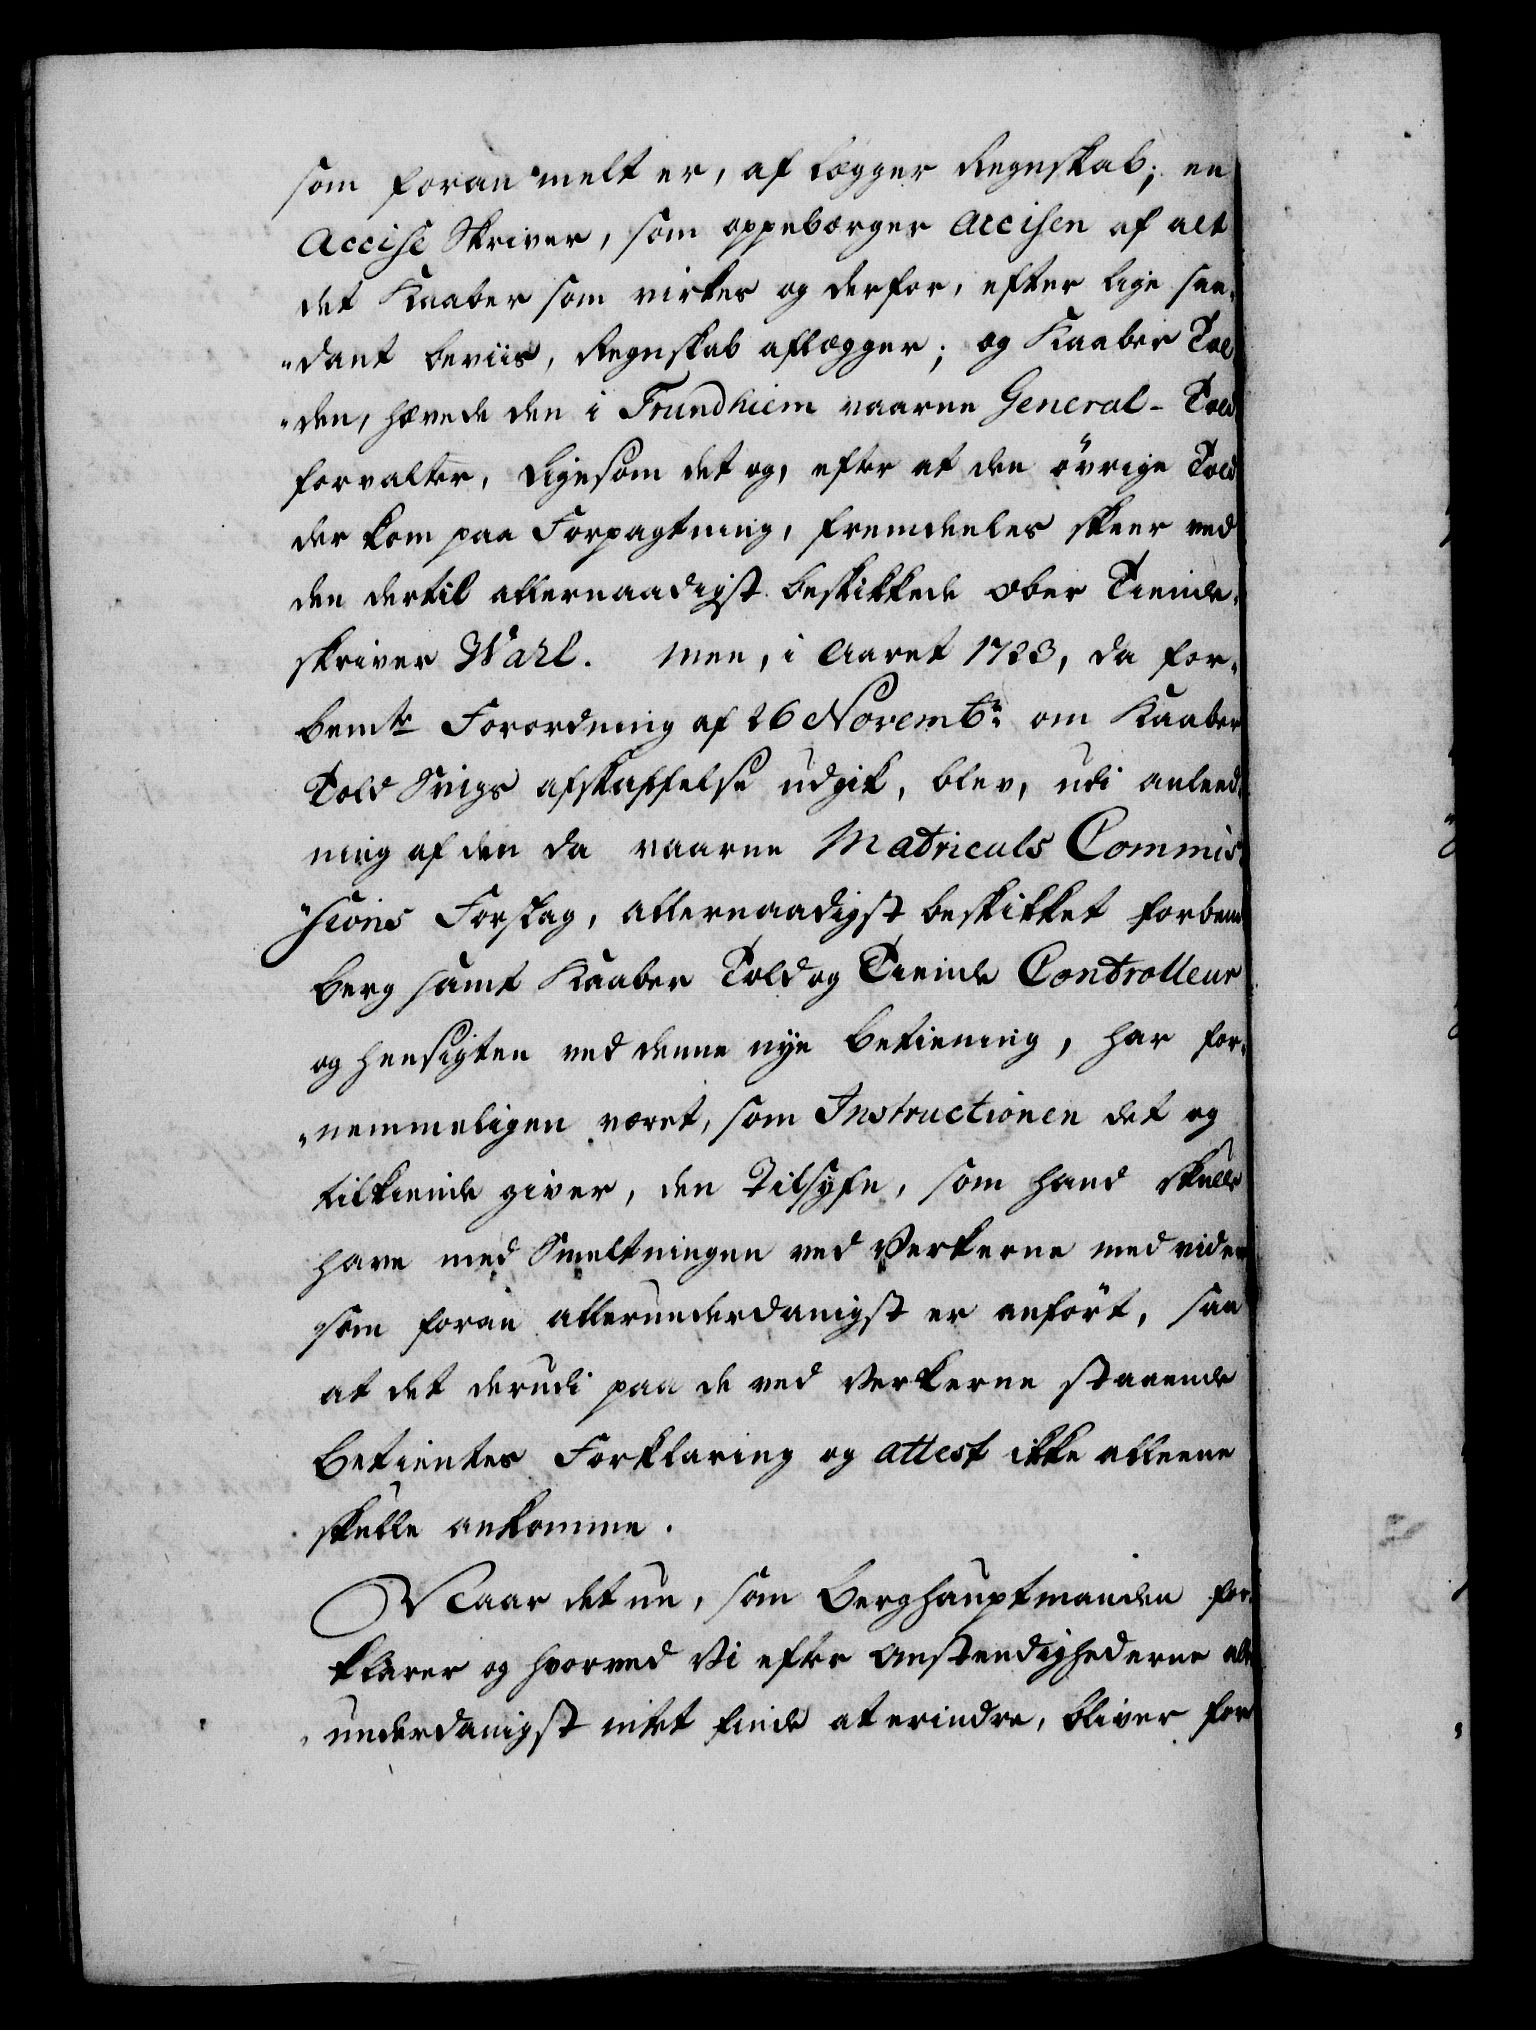 som foran melt er, af lægger Regnskab; en
Accise Skriver, som oppebærger Accisen af alt
det Kaaber som virkes og derfor, efter lige saa-
"dant beviis, Regnskab aflægger; og Kaaber Tol
"den, hævede den i Trundhiem vaarne General-Told
forvalter, Ligesom det og, efter at den övrige Told
der kom paa Forpagtning, fremdeeles skeer ved
den dertil allernaadigst beskikkede Ober Tiende-
skriver Wahl. Men, i Aaret 1723, da for-
bemte Forordning af 26 Novembr: om Kaaber
Told Svigs afskaffelse udgik, blev, udi anleed-
ning af den da vaarne Matriculs Commis
"sions Forslag, allernaadigst beskikket forbem
Berg samt Kaaber Told og Tiende Controlleur
og hensigten ved denne nye Betiening, har for-
"nemmeligen været, som Instructionen det og
tilkiende giver, den Tilsyfn, som hand skulle
have med Smeltningen ved Verkerne med viden
som foran allerunderdanigst er anført, saa
at det derudi paa de ved Verkerne staaende
Betientes Forklaring og attest ikke alleene
skulle ankomme.
Naar det nu, som Berghauptmanden for-
klarer og hvorved Vi efter Omstendighederne all
underdanigst intet finde at erindre, bliver for